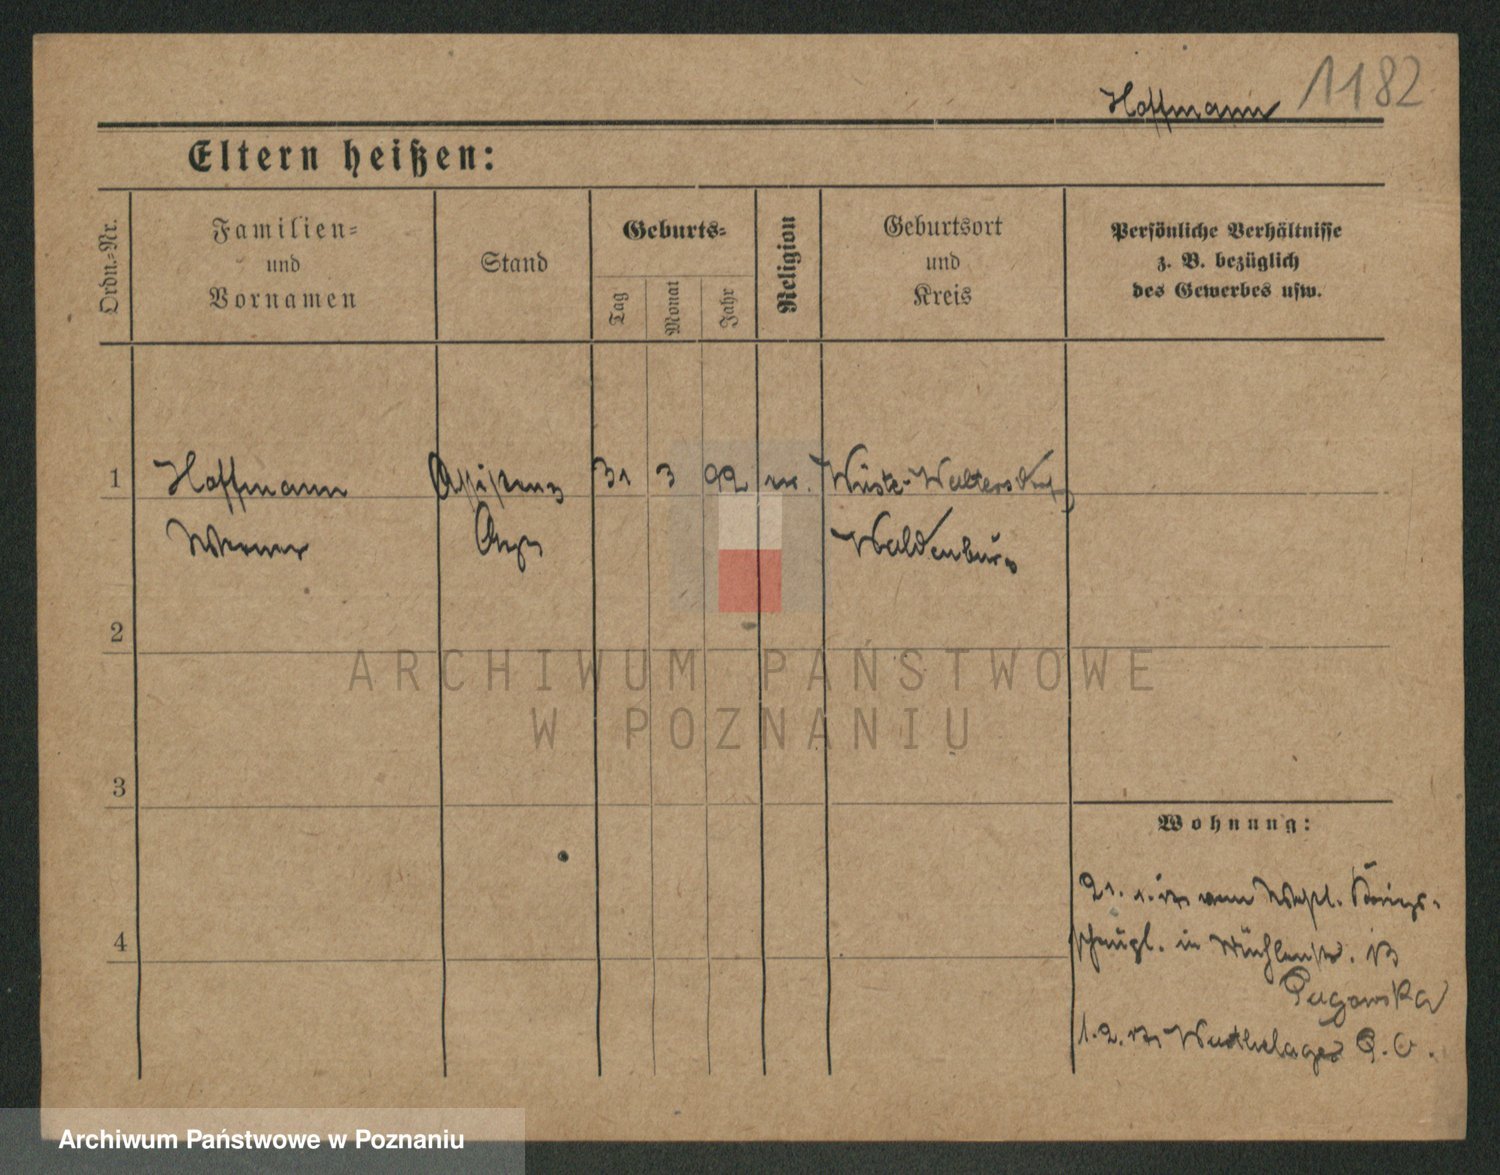 Hoffmann 1182
Eltern heißen:
Ordn.-Nr.
Familien-
und
Vornamen
Stand
Geburts-
Tag
Monat
Jahr
Religion
Geburtsort
und
Kreis
Persönliche Verhältnisse
z. B. bezüglich
des Gewerbes usw.
1 Hoffmann Assistenz 31 3 92 ev. Wüste-Waltersdorf
Werner Arzt Waldenburg
2
ARCHIWUM PAŃSTWOWE
W POZNANIU
3
Wohnung:
4
21. von Königs-
in Mühlenstr. 13
Pugowska
1. 2.
Archiwum Państwowe w Poznaniu